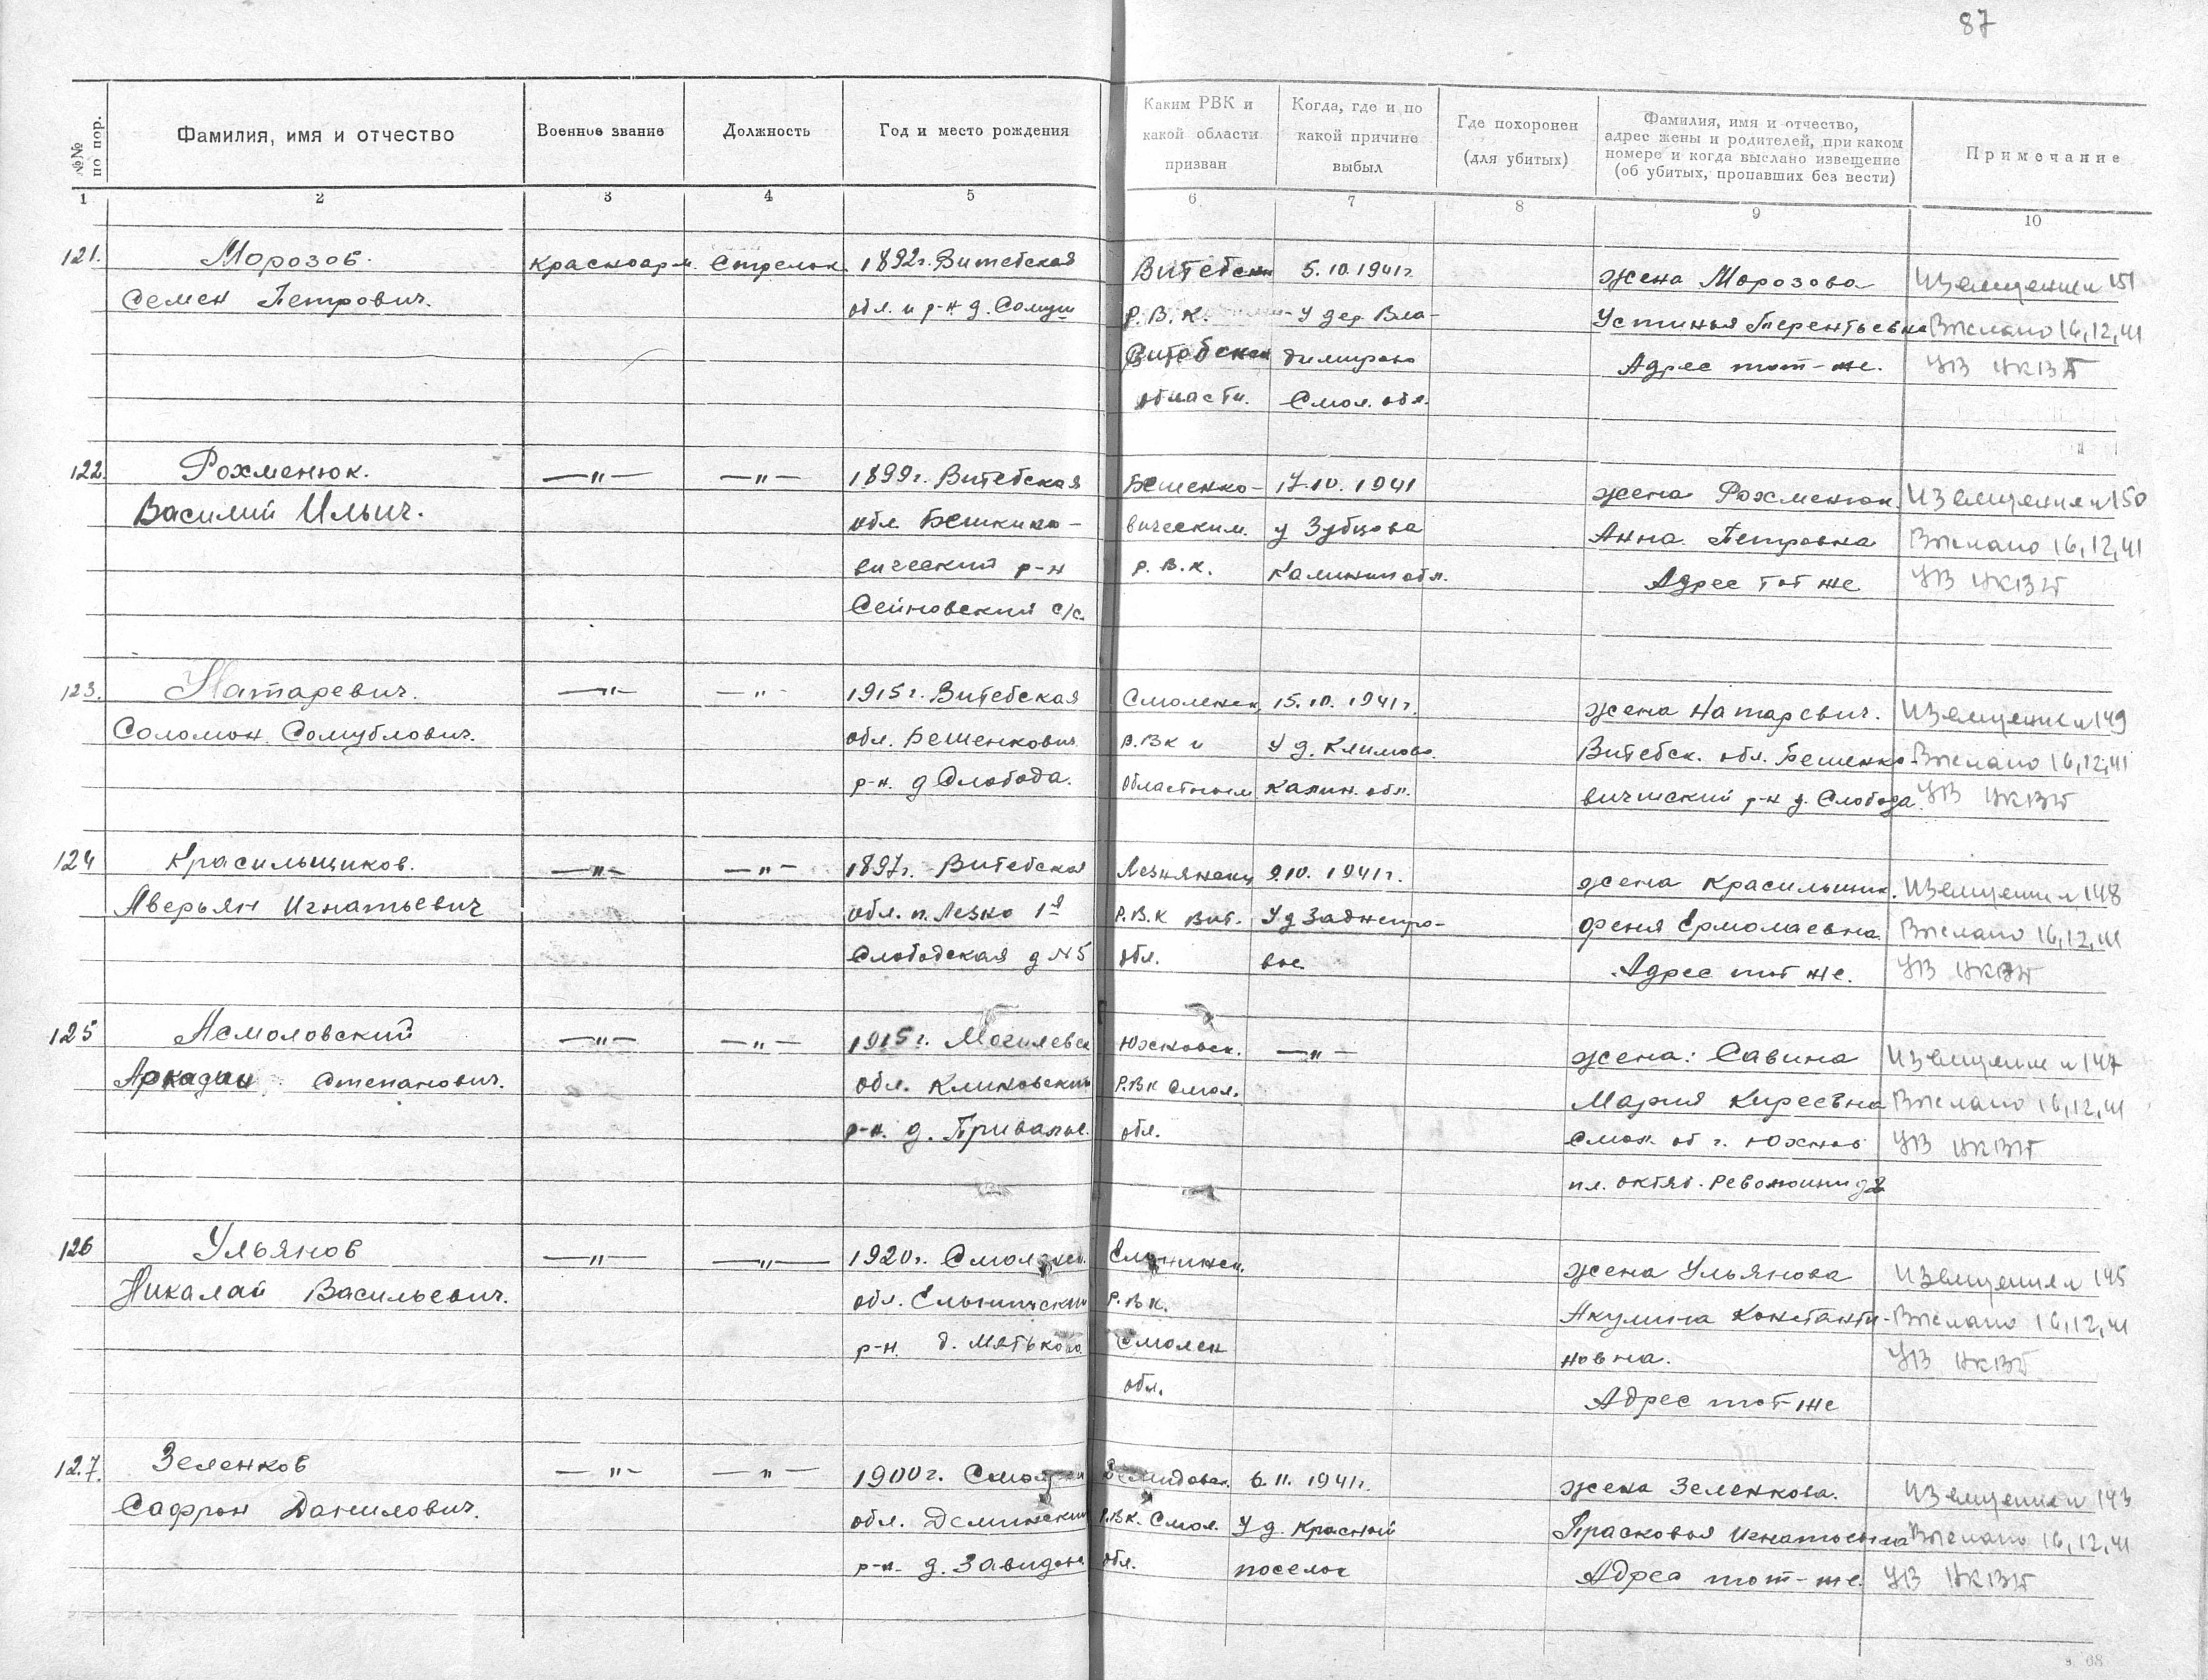 87
№№ по пор.
Фамилия, имя и отчество
Военное звание
Должность
Год и место рождения
Каким РВК и какой области призван
Когда, где и по какой причине выбыл
Где похоронен (для убитых)
Фамилия, имя и отчество, адрес жены и родителей, при каком номере и когда выслано извещение (об убитых, пропавших без вести)
Примечание
1 2 3 4 5 6 7 8 9 10
121. Морозов. Красноарм. Стрелок. 1892г. Витебская Витебским 5.10.1941г. жена Морозова Извещение н 151
Семен Петрович. обл. и р-н д. Р.В.К. У дер. Вла- Устинья Терентьевна Выслано 16,12,41
Витебской димирово Адрес тот-же. УВ НКВД
области. Смол. обл.
122. Рохменюк. —"— —"— 1899г. Витебская Бешенко- 17.10.1941 жена Рохменюк. Извещение н 150
Василий Ильич. обл. Бешинко- вическим. у Зубцова Анна Петровна Выслано 16,12,41
вический р-н р.в.к. Калинин обл. Адрес тот же УВ НКВД
Сейновский с/с.
123. Натаревич. —"— —"— 1915г. Витебская Смоленск. 15.10.1941г. жена Натаревич. Извещение н 149
Соломон Самублович. обл. Бешенкович. Р.ВК и У д. Климово. Витебск. обл. Бешенко- Выслано 16,12,41
р-н. д Слобода. областным Калин. обл. вичиский р-н д. Слобода. УВ НКВД
124 Красильщиков. —"— —"— 1897г. Витебская Лезнянским 9.10.1941г. жена Красильщик. Извещение н 148
Аверьян Игнатьевич обл. п. Лезно 1я Р.В.К Вит. У д Заднепро- Феня Ермолаевна Выслано 16,12,41
Слободская д N5 обл. вье Адрес тот же. УВ НКВД
125 Асмоловский —"— —"— 1915г. Могилевск Юхновск. —"— жена: Савина Извещение н 147
Аркадии Степанович. обл. Кликовский Р.ВК Смол. Мария Киреевна Выслано 16,12,41
р-н. д. Приволье. обл. Смол. об г. Юхнов УВ НКВД
пл. Октяб. Революции д 2
126 Ульянов —"— —"— 1920г. Смоленск. Ельнинск. жена Ульянова Извещение н 145
Николай Васильевич. обл. Ельнинский Р.ВК. Акулина Константи- Выслано 16,12,41
р-н. д. Мятьково Смолен новна. УВ НКВД
обл. Адрес тот-же
127. Зеленков —"— —"— 1900г. Смолен Демидовск. 6.11.1941г. жена Зеленкова. Извещение н 143
Сафрон Данилович. обл. Р.ВК. Смол. У д. Красный Прасковья Игнатьевна Выслано 16,12,41
р-н. д. обл. поселок Адрес тот-же. УВ НКВД